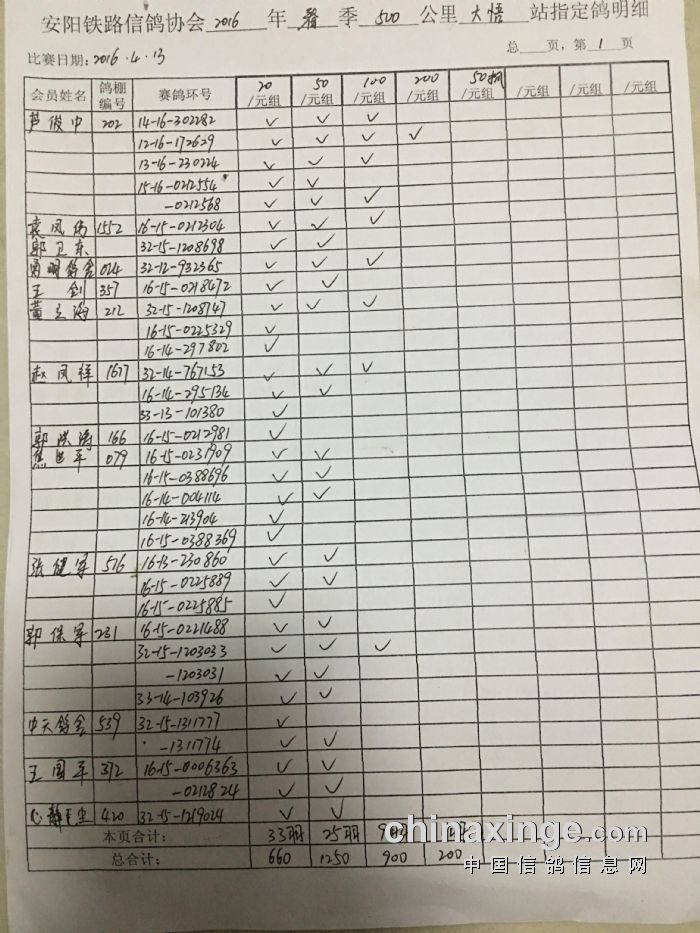 安阳铁路信鸽协会 2016 年 春 季 500 公里 大悟 站指定鸽明细
比赛日期：2016.4.13 总 页，第 1 页
会员姓名 鸽棚编号 赛鸽环号 20/元组 50/元组 100/元组 200/元组 50/元组 /元组 /元组 /元组
芦俊中 202 14-16-302282 ✓ ✓ ✓
12-16-172629 ✓ ✓ ✓ ✓
13-16-230224 ✓ ✓ ✓
15-16-0212554 ✓ ✓
-0212568 ✓ ✓ ✓
袁凤伟 1552 16-15-0212304 ✓ ✓ ✓
郭卫东 32-15-1208698 ✓ ✓
鸽舍 024 32-12-932365 ✓ ✓ ✓
王剑 357 16-15-0218472 ✓ ✓
黄立海 212 32-15-1208747 ✓ ✓ ✓
16-15-0225329 ✓
16-14-297802 ✓
赵凤祥 1677 32-14-767153 ✓ ✓ ✓
16-14-295134 ✓ ✓
33-13-101380 ✓
郭洪涛 166 16-15-0212981 ✓
焦 军 079 16-15-0231909 ✓ ✓
16-15-0388696 ✓ ✓
16-14-004114 ✓ ✓
16-14-213904 ✓
16-15-0388369 ✓
张健军 516 16-13-230860 ✓ ✓
16-15-0225889 ✓ ✓
16-15-0225885 ✓
郭保军 231 16-15-0221488 ✓ ✓
32-15-1203033 ✓ ✓ ✓
-1203031 ✓ ✓
33-14-103926 ✓ ✓
中天鸽舍 539 32-15-1311777 ✓
-1311774 ✓ ✓
王国军 372 16-15-0006363 ✓ ✓
-0212824 ✓ ✓
心静 420 32-15-1219024 ✓ ✓
本页合计： 33羽 25羽 9羽
总合计： 660 1250 900 200
chinaxinge.com
中国信鸽信息网